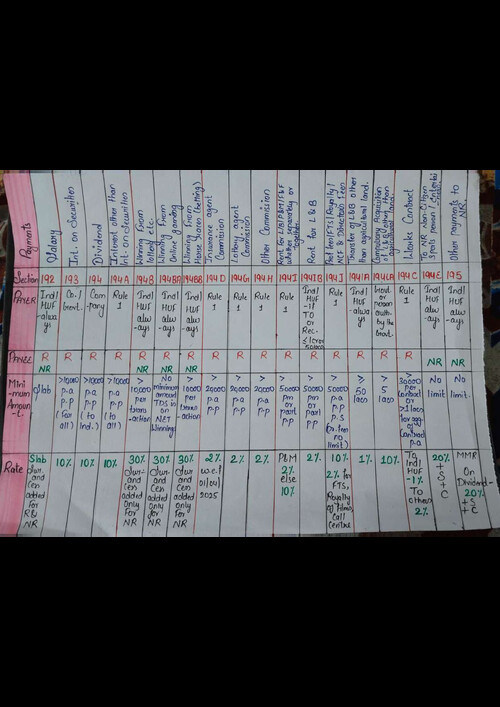 Payments
Salary
Int. on Securities
Dividend
Interest other than
Int. on Securities
Winning from
lottery etc.
Winning from
Online gaming
Winning from
Horse races (betting)
Insurance agent
Commission
Lottery agent
Commission
Other Commission
Rent for L/B/P&M/F&F
whether separately or
together
Rent for L&B
Prof. fees/FTS/Royalty/
NCF & Director Fees
Transfer of L&B other
than agricultural land.
Compulsory Acquisition
of L&B other than
To a NR Non-Citizen
Works Contract
Other payments to
NR
Section 192 193 194 194A 194B 194BA 194BB 194D 194G 194H 194I 194IB 194J 194IA 194LA 194C 194E 195
PAYER
Ind/
HUF
-alw
ays
Co./
Govt.
Com
-pany
Rule
1
Ind/
HUF
alw
-ays
Ind/
HUF
alw
-ays
Ind/
HUF
alw
-ays
Rule
1
Rule
1
Rule
1
Rule
1
Ind/
HUF
-if
TO
or
Rec.
Rule
1
Ind/
HUF
-alwa
ys
Govt or
person
auth-
by the
Govt.
Rule
1
Ind/
HUF
alw
-ays
Ind/
HUF
alw
-ays
PAYEE
R
NR
R
R
R
R
NR
R
NR
R
NR
R
R
R
R
R
R
R
R
R
NR
NR
Mini
-mum
Amoun
-t.
Slab
>10000
p.a
p.p
(For all)
>10000
p.a
p.p
(to Ind.)
>10000
p.a
p.p
(to all)
>
10000
per
trans
-action
No
minimum
amount
TDS is
on NET
winnings
>
10000
per
trans
-action
>
20000
p.a
p.p
>
20000
p.a
p.p
>
20000
p.a
p.p
>
50000
pm or
part
pp
>
50000
pm or
part
pp
>
50000
p.a
p.p
p.s
no limit)
≥
50
lacs
>
5
lacs
>
30000
per
contract
or
>1 lacs
for agg
of
Contract
p.a
No
limit
No
limit.
Rate
Slab
Sur-
and
Cen
added
for
R&
NR
10%
10%
10%
30%
Sur-
and
Cen
added
only
for
NR
30%
Sur-
and
Cen
added
only
for
NR
30%
Sur
and
Cen
added
only
for
NR
2%
w.e.f
01/04/
2025
2%
2%
P&M
2%
else
10%
2%
10%
2% for
FTS,
Royalty
of films,
Call
Centres
1%
10%
To
Ind/
HUF
-1%
To
others
2%
20%
+
S
+
C
MMR
On
Dividend-
20%
+S
+C